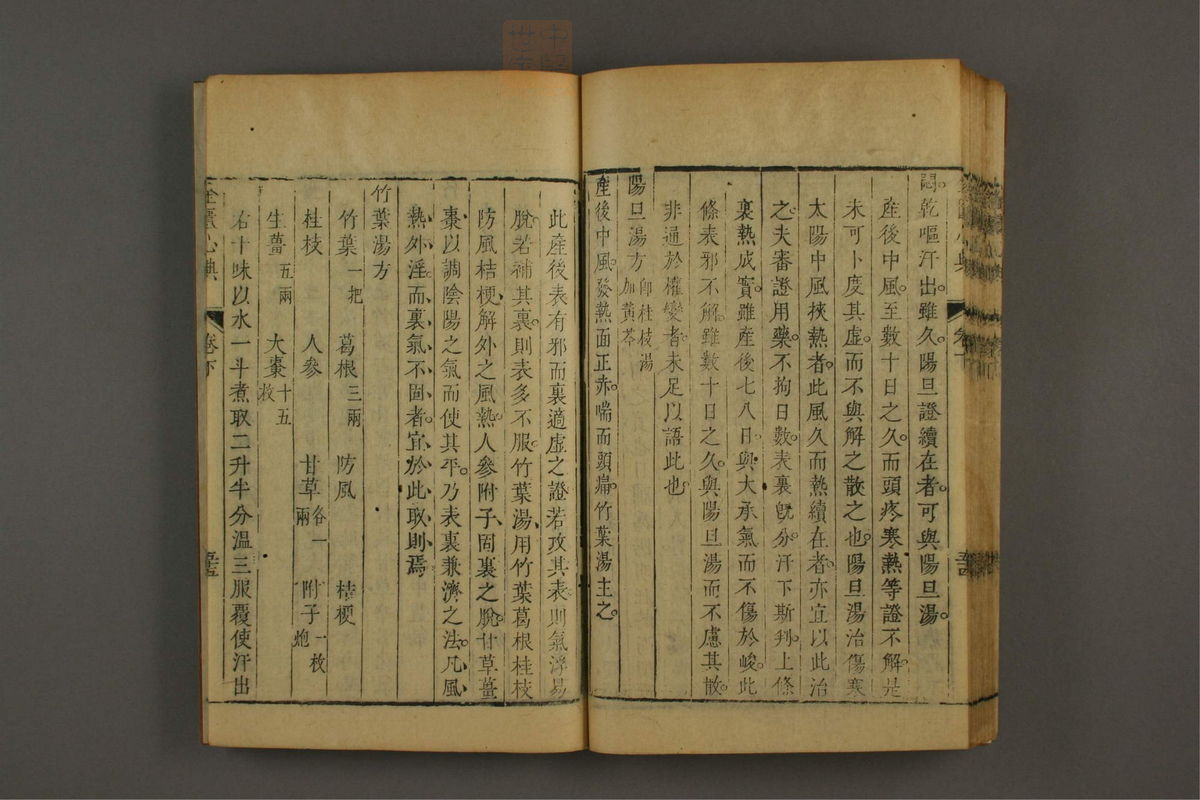 悶。乾嘔汗出。雖久。陽旦證續在者。可與陽旦湯。
產後中風。至數十日之久。而頭疼寒熱等證不解。是
未可卜度其虛。而不與解之散之也。陽旦湯治傷寒
太陽中風挾熱者。此風久而熱續在者。亦宜以此治
之。夫審證用藥。不拘日數。表裏旣分。汗下斯判。上條
裏熱成實。雖產後七八日。與大承氣而不傷於峻。此
條表邪不解。雖數十日之久。與陽旦湯而不慮其散。
非通於權變者。未足以語此也。
陽旦湯方 卽桂枝湯加黃芩
產後中風。發熱面正赤。喘而頭痛。竹葉湯主之。
此產後表有邪而裏適虛之證。若攻其表。則氣浮易
脫。若補其裏。則表多不服。竹葉湯、用竹葉葛根桂枝
防風桔梗、解外之風熱。人參附子、固裏之脫。甘草薑
棗以調陰陽之氣而使其平。乃表裏兼濟之法。凡風
熱外淫。而裏氣不固者。宜於此取則焉。
竹葉湯方
竹葉一把 葛根三兩 防風 桔梗
桂枝 人參 甘草各一兩 附子一枚炮
生薑五兩 大棗十五枚
右十味以水一斗煮取二升半分溫三服覆使汗出
金匱心典 卷下